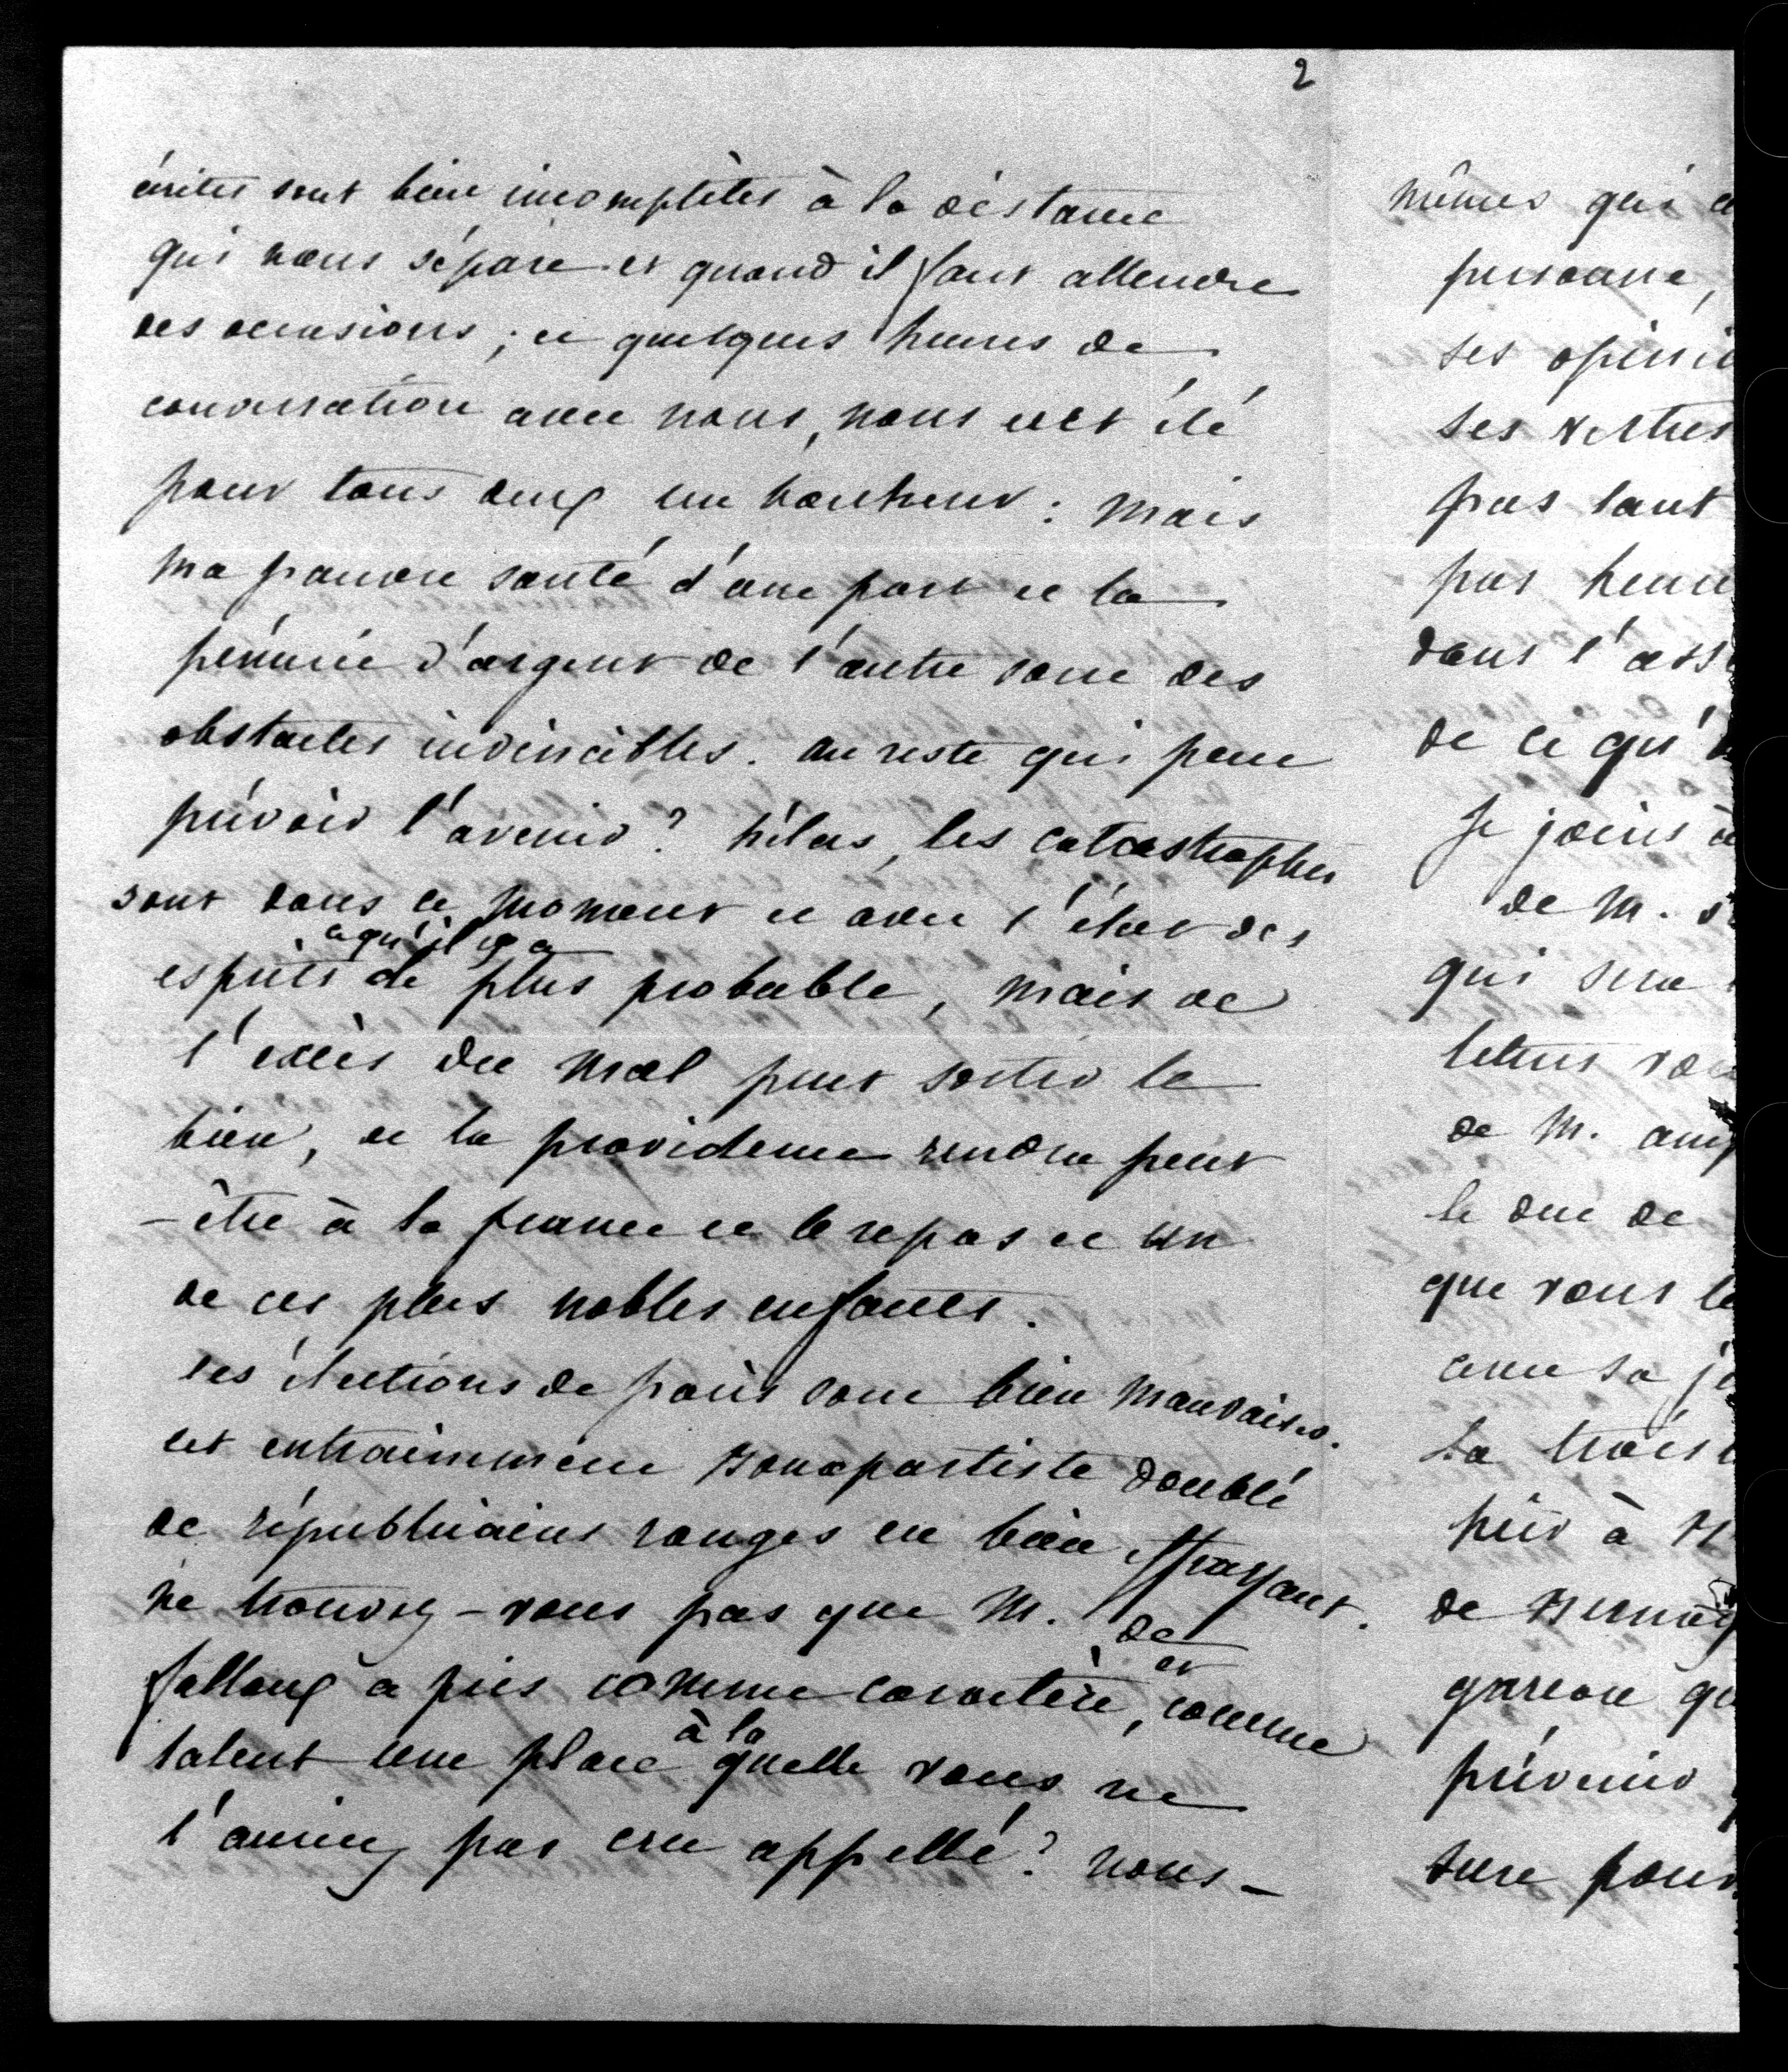 2
écrites sont bien incomplètes à la distance
qui nous sépare et quand il faut attendre
des occasions ; et quelques heures de
conversation avec nous, nous eut été
pour tous deux un bonheur : mais
ma pauvre santé d'une part et la
pénurie d'argent de l'autre sont des
obstacles invincibles. au reste qui peut
prévoir l'avenir ? hélas, les catastrophes
sont dans ce moment et avec l'état des
esprits ce qu'il y a de plus probable, mais de
l'excès du mal peut sortir le
bien, et la providence rendra peut
-être à la france et le repos et un
de ces plus nobles enfants.
les élections de paris sont bien mauvaises.
cet entrainement Bonapartiste doublé
de républicains rouges est bien effrayant.
ne trouvez-vous pas que M. de
falloux a pris comme caractère, et comme
talent une place à la quelle vous ne
l'auriez pas cru appellé ? nous-
mêmes qui
personne,
ses opini
ses vertus
pas tant
pas heur
dans l'ass
de ce qu'
Je joins
de M.
qui sera
lettres
de M.
le duc de
que vous
avec sa
La trois
pier à
de
garcon
prévenir
sure pour